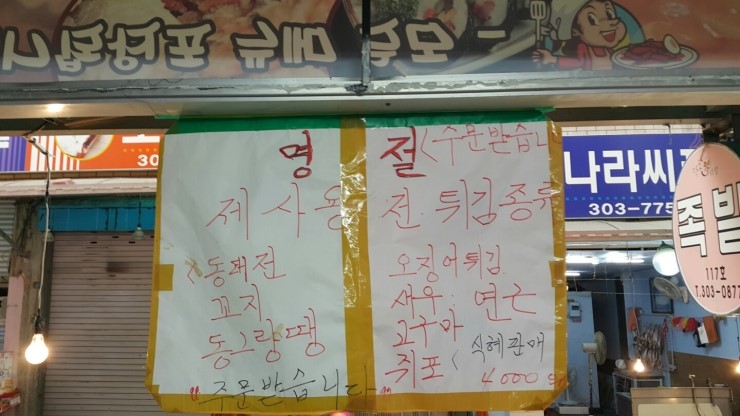 모든 메뉴 포장됩니다
명 절 <주문받습니
제사용 전. 튀김종류
<동태전
꼬지
동그랑땡
"주문받습니다"
오징어튀김
새우. 연근
고구마
쥐포 < 식혜판매
4000
30
나라씨
303-775
족발
117호
T.303-0877